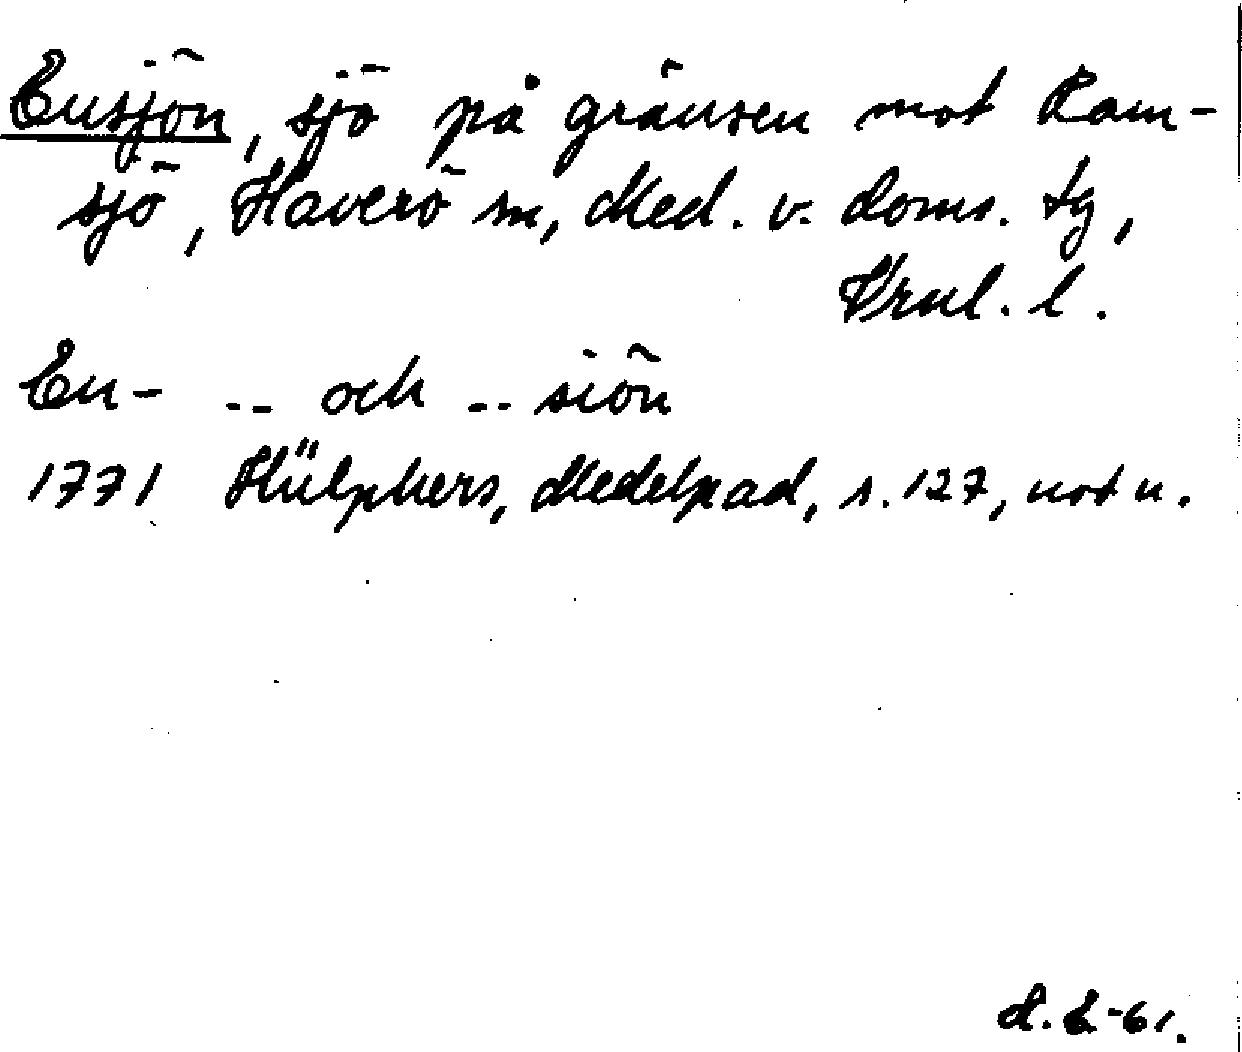 Ensjön, sjö på gränsen mot Ram-
sjö, Haverö sn, Med. v. doms. tg,
Vrnl. l.
En- -- och -- siön
1771 Hülphers, Medelpad, s. 127, not n.